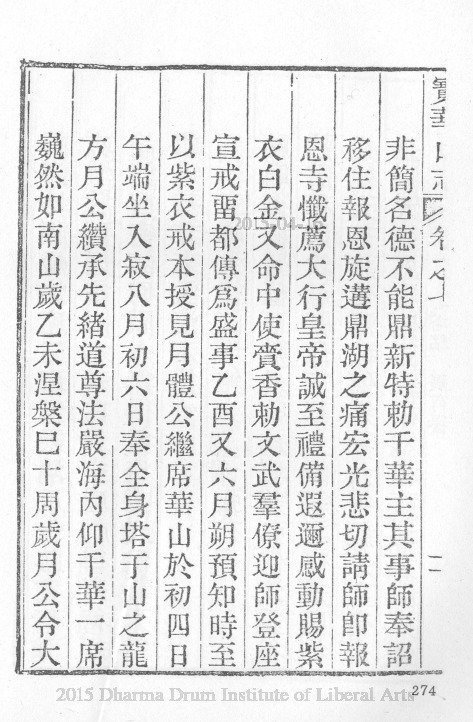 寶華山志 卷之七
非簡名德不能鼎新特勅千華主其事師奉詔
移住報恩旋遘鼎湖之痛宏光悲切請師卽報
恩寺懺薦大行皇帝誠至禮備遐邇感動賜紫
衣白金又命中使賫香勅文武羣僚迎師登座
宣戒畱都傳爲盛事乙酉又六月朔預知時至
以紫衣戒本授見月體公繼席華山於初四日
午端坐入寂八月初六日奉全身塔于山之龍
方月公纘承先緒道尊法嚴海內仰千華一席
巍然如南山歲乙未涅槃巳十周歲月公令大
274
2015 Dharma Drum Institute of Liberal Arts